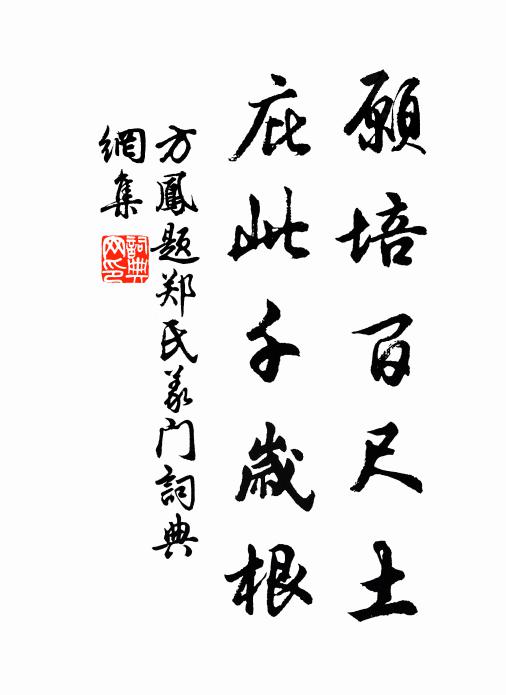 願培百尺土
庇此千歲根
方鳳题郑氏義门詞典
網集
詞典
网印